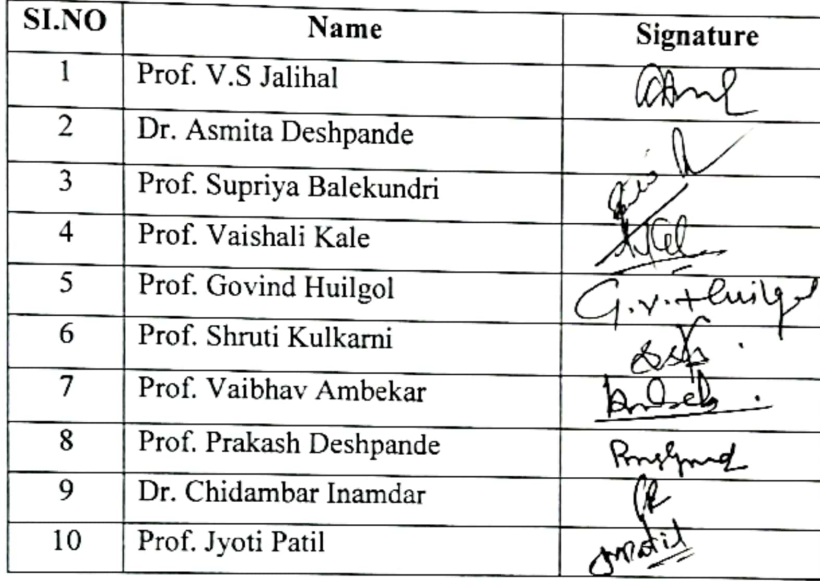 SI.NO Name Signature
1 Prof. V.S Jalihal
2 Dr. Asmita Deshpande
3 Prof. Supriya Balekundri
4 Prof. Vaishali Kale
5 Prof. Govind Huilgol G.V.Huilgol
6 Prof. Shruti Kulkarni
7 Prof. Vaibhav Ambekar
8 Prof. Prakash Deshpande
9 Dr. Chidambar Inamdar
10 Prof. Jyoti Patil JMPatil